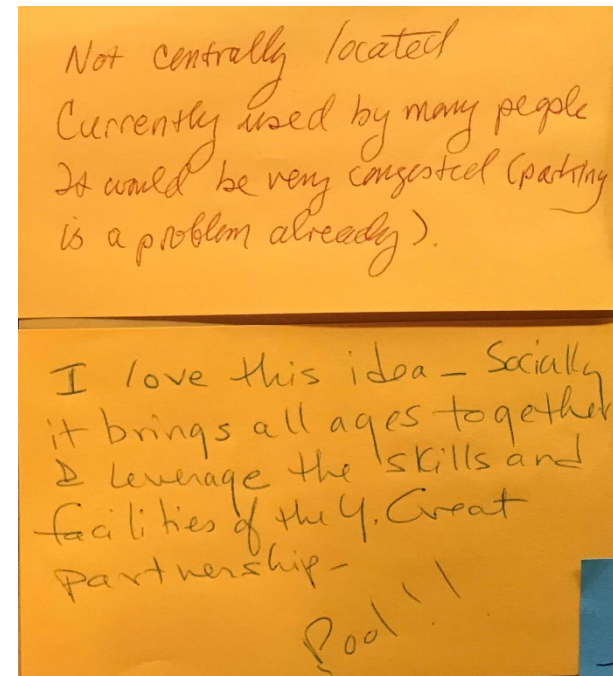 Not centrally located
Currently used by many people
It would be very congested (parking
is a problem already).
I love this idea – Socially
it brings all ages together
& leverage the skills and
facilities of the Y. Great
partnership –
Pool!!